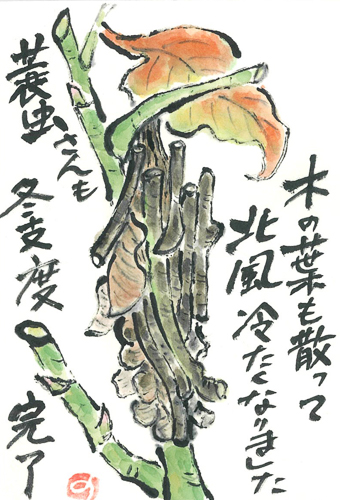 木の葉も散って
北風冷たくなりました
蓑虫さんも
冬支度
完了